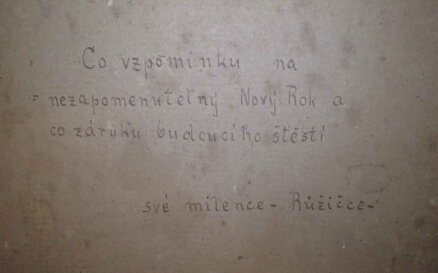 Co vzpomínku na
nezapomenutelný Nový Rok a
co záruku budcucího štěstí
své milence - Růžičce -